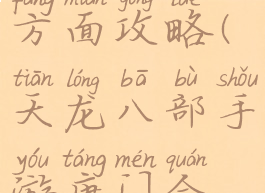 fāng miàn gōng lüè
方面攻略(
tiān lóng bā bù shǒu
天龙八部手
yóu táng mén quán
游唐门全